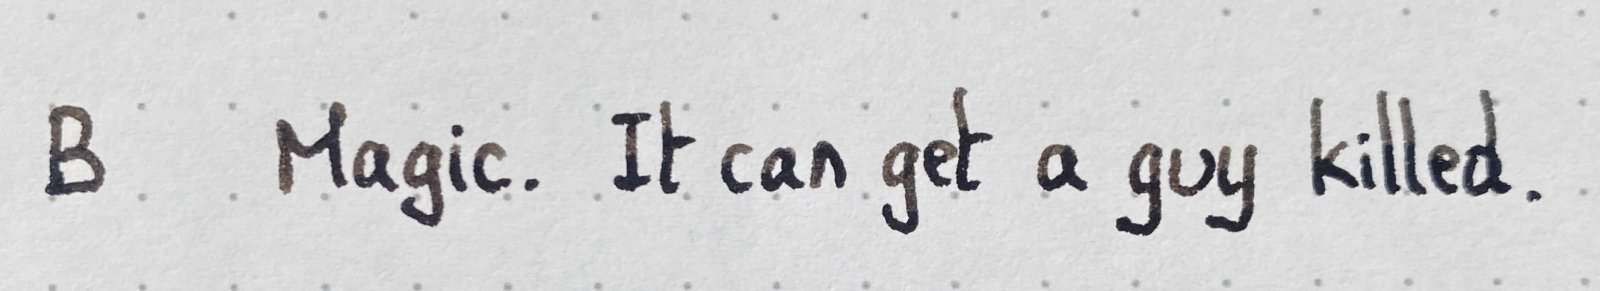 B Magic. It can get a guy killed.